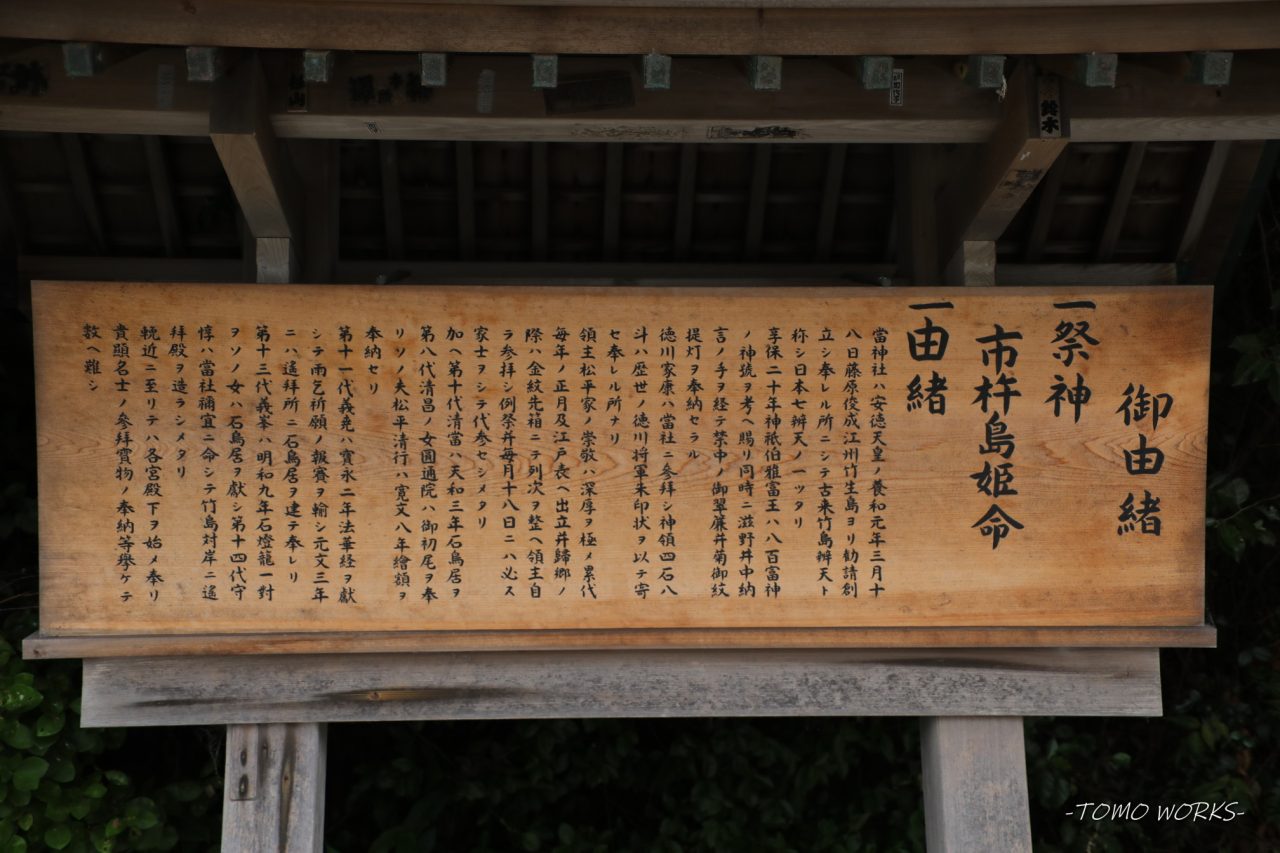 御由緒
一祭神
市杵島姫命
一由緒
當神社ハ安徳天皇ノ養和元年三月十
八日藤原俊成江州竹生島ヨリ勧請創
立シ奉レル所ニシテ古来竹島辨天ト
称シ日本七辨天ノ一ッタリ
享保二十年神祇伯雅富王ハ八百富神
ノ神號ヲ考ヘ賜リ同時ニ滋野井中納
言ノ手ヲ経テ禁中ノ御翠簾井菊御紋
提灯ヲ奉納セラル
徳川家康ハ當社ニ参拝シ神領四石八
斗ハ歴世ノ徳川将軍朱印状ヲ以テ寄
セ奉レル所ナリ
領主松平家ノ崇敬ハ深厚ヲ極メ累代
毎年ノ正月及江戸表ヘ出立井歸郷ノ
際ハ金紋先箱ニテ列次ヲ整ヘ領主自
ラ参拝シ例祭井毎月十八日ニハ必ス
家士ヲシテ代参セシメタリ
加ヘ第十代清當ハ天和三年石鳥居ヲ
第八代清昌ノ女圓通院ハ御初尾ヲ奉
リソノ夫松平清行ハ寛文八年繪額ヲ
奉納セリ
第十一代義尭ハ寳永二年法華経ヲ獻
シテ雨乞祈願ノ報賽ヲ輸シ元文三年
ニハ遙拝所ニ石鳥居ヲ建テ奉レリ
第十三代義峯ハ明和九年石燈籠一對
ヲソノ女ハ石鳥居ヲ獻シ第十四代守
惇ハ當社禰宜ニ命シテ竹島対岸ニ遙
拝殿ヲ造ラシメタリ
輓近ニ至リテハ各宮殿下ヲ始メ奉リ
貴顕名士ノ参拝寳物ノ奉納等擧ケテ
数ヘ難シ
鈴木
-TOMO WORKS-